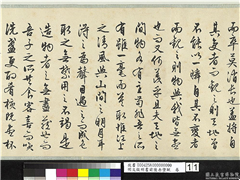 而卒莫消長也蓋將自
其變者而觀之則天地曾
不能以一瞬自其不變者
而觀之則物與我皆無盡
也而又何羨乎且夫天地之
間物各有主苟非吾之所
有雖一毫而莫取惟江上
之清風與山間之明月耳
得之為聲目遇之而成色
取之無禁用之不竭是
造物者之無盡藏也而
吾子之所共食客喜而笑
洗盞更酌肴核既盡杯
11